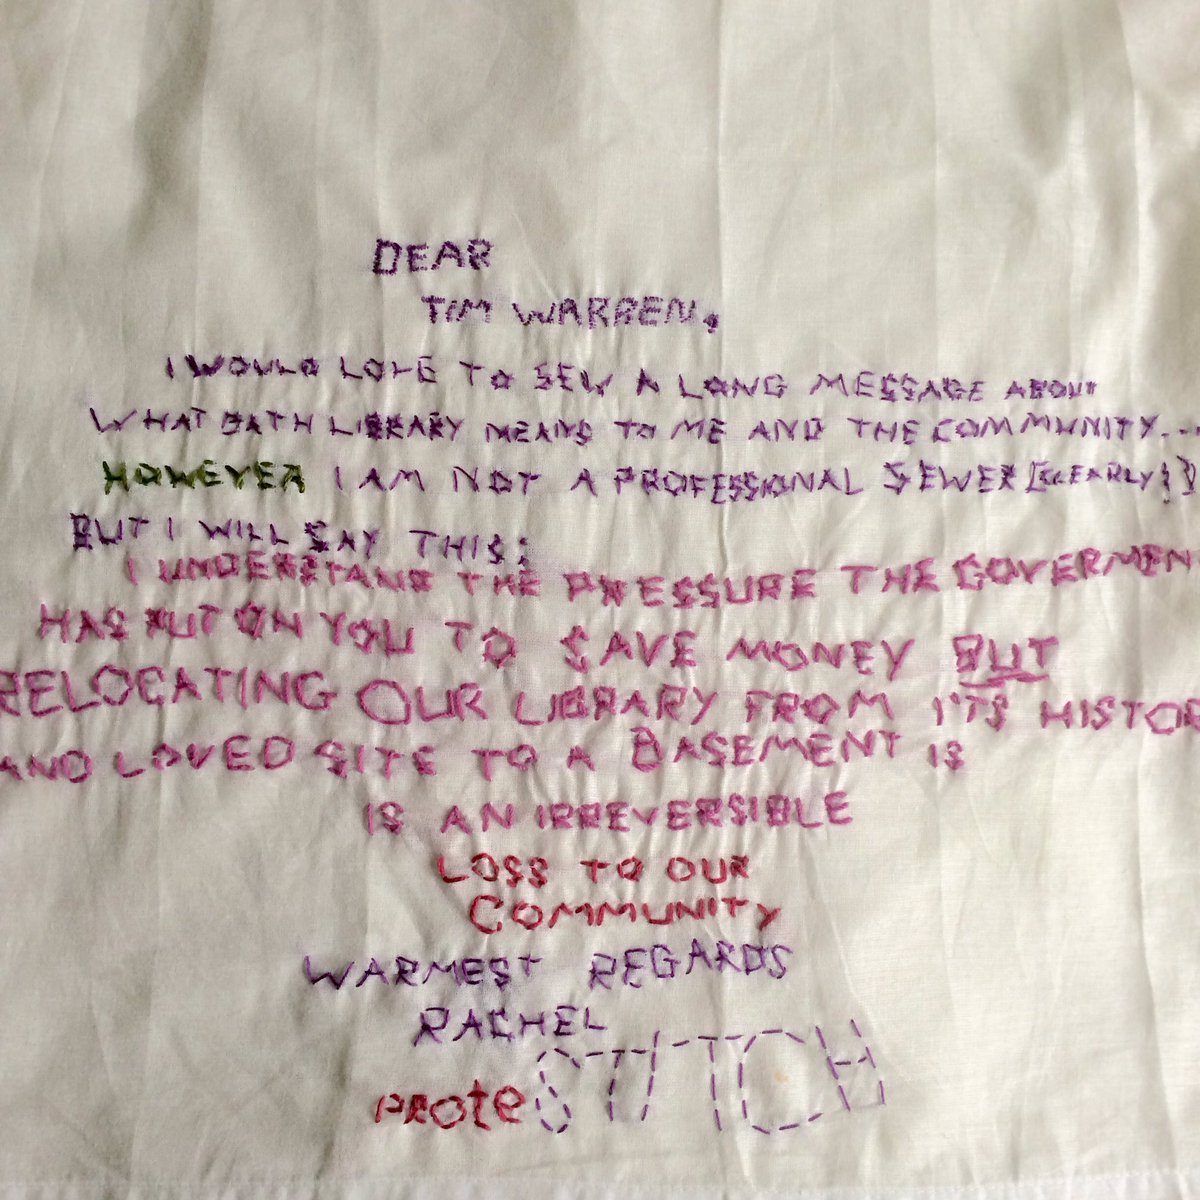 DEAR
TIM WARREN,
I WOULD LOVE TO SEW A LONG MESSAGE ABOUT
WHAT BATH LIBRARY MEANS TO ME AND THE COMMUNITY...
HOWEVER I AM NOT A PROFESSIONAL SEWER [CLEARLY!]
BUT I WILL SAY THIS:
I UNDERSTAND THE PRESSURE THE GOVERMEN
HAS PUT ON YOU TO SAVE MONEY BUT
RELOCATING OUR LIBRARY FROM IT'S HISTOR
AND LOVED SITE TO A BASEMENT IS
IS AN IRREVERSIBLE
LOSS TO OUR
COMMUNITY
WARMEST REGARDS
RACHEL
PROteSTITCH